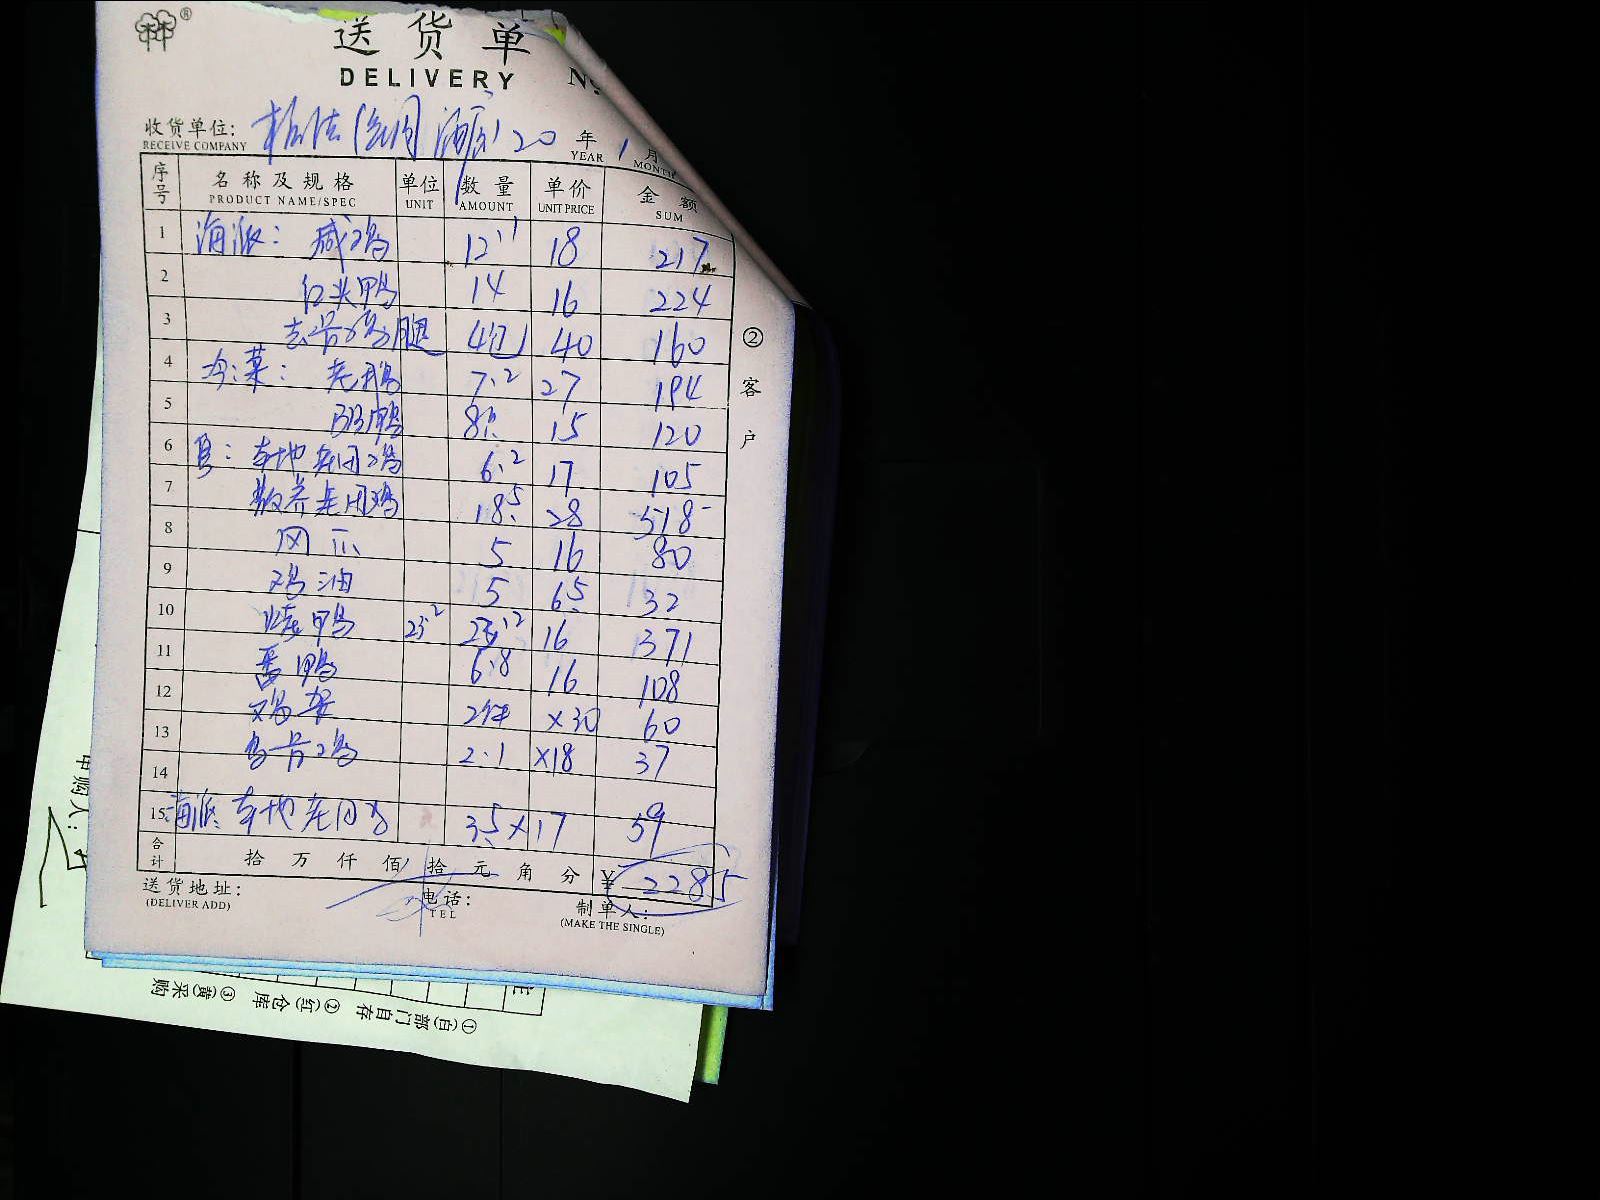 ®
送货单
DELIVERY No.
收货单位: 20 年 1 月
RECEIVE COMPANY YEAR MONTH
序号 名称及规格 单位 数量 单价 金额
PRODUCT NAME/SPEC UNIT AMOUNT UNIT PRICE SUM
1 海派: 鸡 12.1 18 217
2 红头鸭 14 16 224
3 去骨鸡腿 4包 40 160
4 冷菜: 老鹅 7.2 27 194
5 鸭 8只 15 120
6 本地老母鸡 6.2 17 105
7 散养老母鸡 18.5 28 518
8 凤爪 5 16 80
9 鸡油 5 6.5 32
10 烤鸭 23.2 23.2 16 371
11 番鸭 6.8 16 108
12 鸡架 2件 ×30 60
13 乌骨鸡 2.1 ×18 37
14
15 海派: 本地老母鸡 3.5 ×17 59
合计 拾万仟佰拾元角分 ¥ 2285
送货地址: 电话: 制单人:
(DELIVER ADD) TEL (MAKE THE SINGLE)
②客户
申购人:
①(白)部门自存 ②(红)仓库 ③(黄)采购